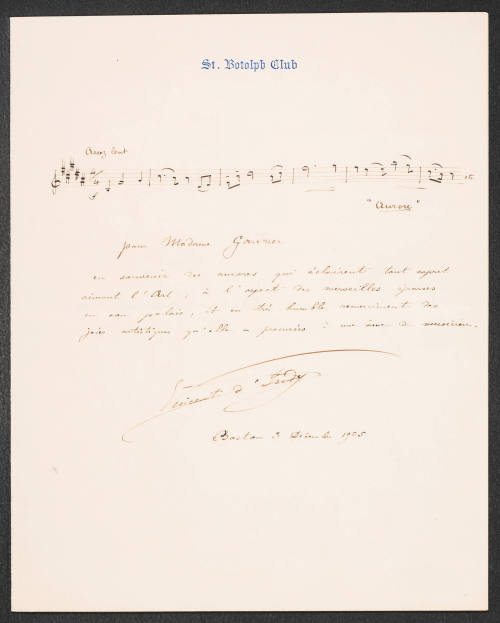 St. Botolph Club
Assez lent
etc
"Aurore"
pour Madame Gardner
en souvenir des aurores qui éclairent tout esprit
aimant l'Art, à l'aspect des merveilles éparses
en son palais, et en très humble remerciement des
joies artistiques qu'elle a procurées à une âme de musicien.
Vincent d'Indy
Boston 3 Décembre 1905